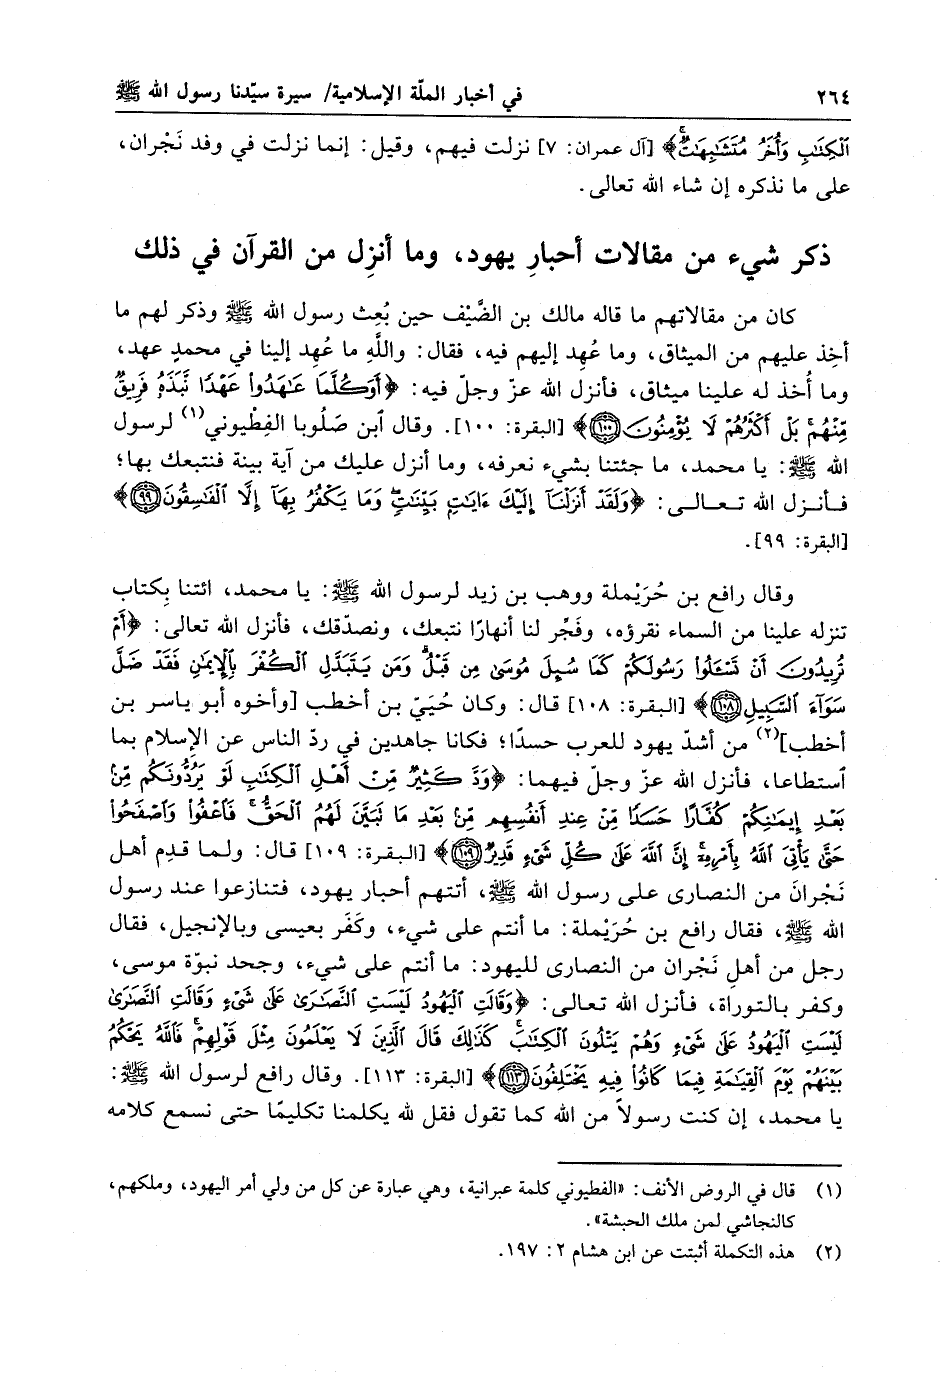 ٢٦٤ في أخبار الملّة الإسلامية/ سيرة سيّدنا رسول الله ﷺ
ٱلۡكِتَٰبِ وَأُخَرُ مُتَشَٰبِهَٰتٞۖ﴾ [آل عمران: ٧] نزلت فيهم، وقيل: إنما نزلت في وفد نَجْران،
على ما نذكره إن شاء الله تعالى.
ذكر شيء من مقالات أحبارِ يهود، وما أنزِل من القرآن في ذلك
كان من مقالاتهم ما قاله مالك بن الضَّيْف حين بُعِث رسول الله ﷺ وذكر لهم ما
أخِذ عليهم من الميثاق، وما عُهِد إليهم فيه، فقال: واللَّهِ ما عُهِد إلينا في محمدٍ عهد،
وما أُخذ له علينا ميثاق، فأنزل الله عزّ وجلّ فيه: ﴿أَوَكُلَّمَا عَٰهَدُواْ عَهۡدٗا نَّبَذَهُۥ فَرِيقٞ
مِّنۡهُمۚ بَلۡ أَكۡثَرُهُمۡ لَا يُؤۡمِنُونَ ١٠٠﴾ [البقرة: ١٠٠]. وقال ٱبن صَلُوبا الفِطْيوني(١) لرسول
الله ﷺ: يا محمد، ما جئتنا بشيء نعرفه، وما أنزل عليك من آية بينة فنتبعك بها؛
فـأنـزل الله تـعـالـى: ﴿وَلَقَدۡ أَنزَلۡنَآ إِلَيۡكَ ءَايَٰتِۭ بَيِّنَٰتٖۖ وَمَا يَكۡفُرُ بِهَآ إِلَّا ٱلۡفَٰسِقُونَ ٩٩﴾
[البقرة: ٩٩].
وقال رافع بن حُرَيْملة ووهب بن زيد لرسول الله ﷺ: يا محمد، ائتنا بِكتاب
تنزله علينا من السماء نقرؤه، وفَجِّر لنا أنهارًا نتبعك، ونصدّقك، فأنزل الله تعالى: ﴿أَمۡ
تُرِيدُونَ أَن تَسۡـَٔلُواْ رَسُولَكُمۡ كَمَا سُئِلَ مُوسَىٰ مِن قَبۡلُۗ وَمَن يَتَبَدَّلِ ٱلۡكُفۡرَ بِٱلۡإِيمَٰنِ فَقَدۡ ضَلَّ
سَوَآءَ ٱلسَّبِيلِ ١٠٨﴾ [البقرة: ١٠٨] قال: وكان حُيَيّ بن أخطب [وأخوه أبو ياسر بن
أخطب](٢) من أشدّ يهود للعرب حسدًا؛ فكانا جاهدين في ردّ الناس عن الإسلام بما
ٱستطاعا، فأنزل الله عزّ وجلّ فيهما: ﴿وَدَّ كَثِيرٞ مِّنۡ أَهۡلِ ٱلۡكِتَٰبِ لَوۡ يَرُدُّونَكُم مِّنۢ
بَعۡدِ إِيمَٰنِكُمۡ كُفَّارًا حَسَدٗا مِّنۡ عِندِ أَنفُسِهِم مِّنۢ بَعۡدِ مَا تَبَيَّنَ لَهُمُ ٱلۡحَقُّۖ فَٱعۡفُواْ وَٱصۡفَحُواْ
حَتَّىٰ يَأۡتِيَ ٱللَّهُ بِأَمۡرِهِۦٓۗ إِنَّ ٱللَّهَ عَلَىٰ كُلِّ شَيۡءٖ قَدِيرٞ ١٠٩﴾ [البـقـرة: ١٠٩] قال: ولـمـا قدِم أهـل
نَجْرانَ من النصارى على رسول الله ﷺ، أتتهم أحبار يهود، فتنازعوا عند رسول
الله ﷺ، فقال رافع بن حُرَيْملة: ما أنتم على شيء، وكَفَر بعيسى وبالإنجيل، فقال
رجل من أهلِ نَجْران من النصارى لليهود: ما أنتم على شيء، وجحد نبوّة موسى،
وكفر بالتوراة، فأنزل الله تعالى: ﴿وَقَالَتِ ٱلۡيَهُودُ لَيۡسَتِ ٱلنَّصَٰرَىٰ عَلَىٰ شَيۡءٖ وَقَالَتِ ٱلنَّصَٰرَىٰ
لَيۡسَتِ ٱلۡيَهُودُ عَلَىٰ شَيۡءٖ وَهُمۡ يَتۡلُونَ ٱلۡكِتَٰبَۗ كَذَٰلِكَ قَالَ ٱلَّذِينَ لَا يَعۡلَمُونَ مِثۡلَ قَوۡلِهِمۡۚ فَٱللَّهُ يَحۡكُمُ
بَيۡنَهُمۡ يَوۡمَ ٱلۡقِيَٰمَةِ فِيمَا كَانُواْ فِيهِ يَخۡتَلِفُونَ ١١٣﴾ [البقرة: ١١٣]. وقال رافع لرسول الله ﷺ:
يا محمد، إن كنت رسولاً من الله كما تقول فقل لله يكلمنا تكليمًا حتى نسمع كلامه
(١) قال في الروض الأنف: «الفطيوني كلمة عبرانية، وهي عبارة عن كل من ولي أمر اليهود، وملكهم،
كالنجاشي لمن ملك الحبشة».
(٢) هذه التكملة أثبتت عن ابن هشام ٢: ١٩٧.